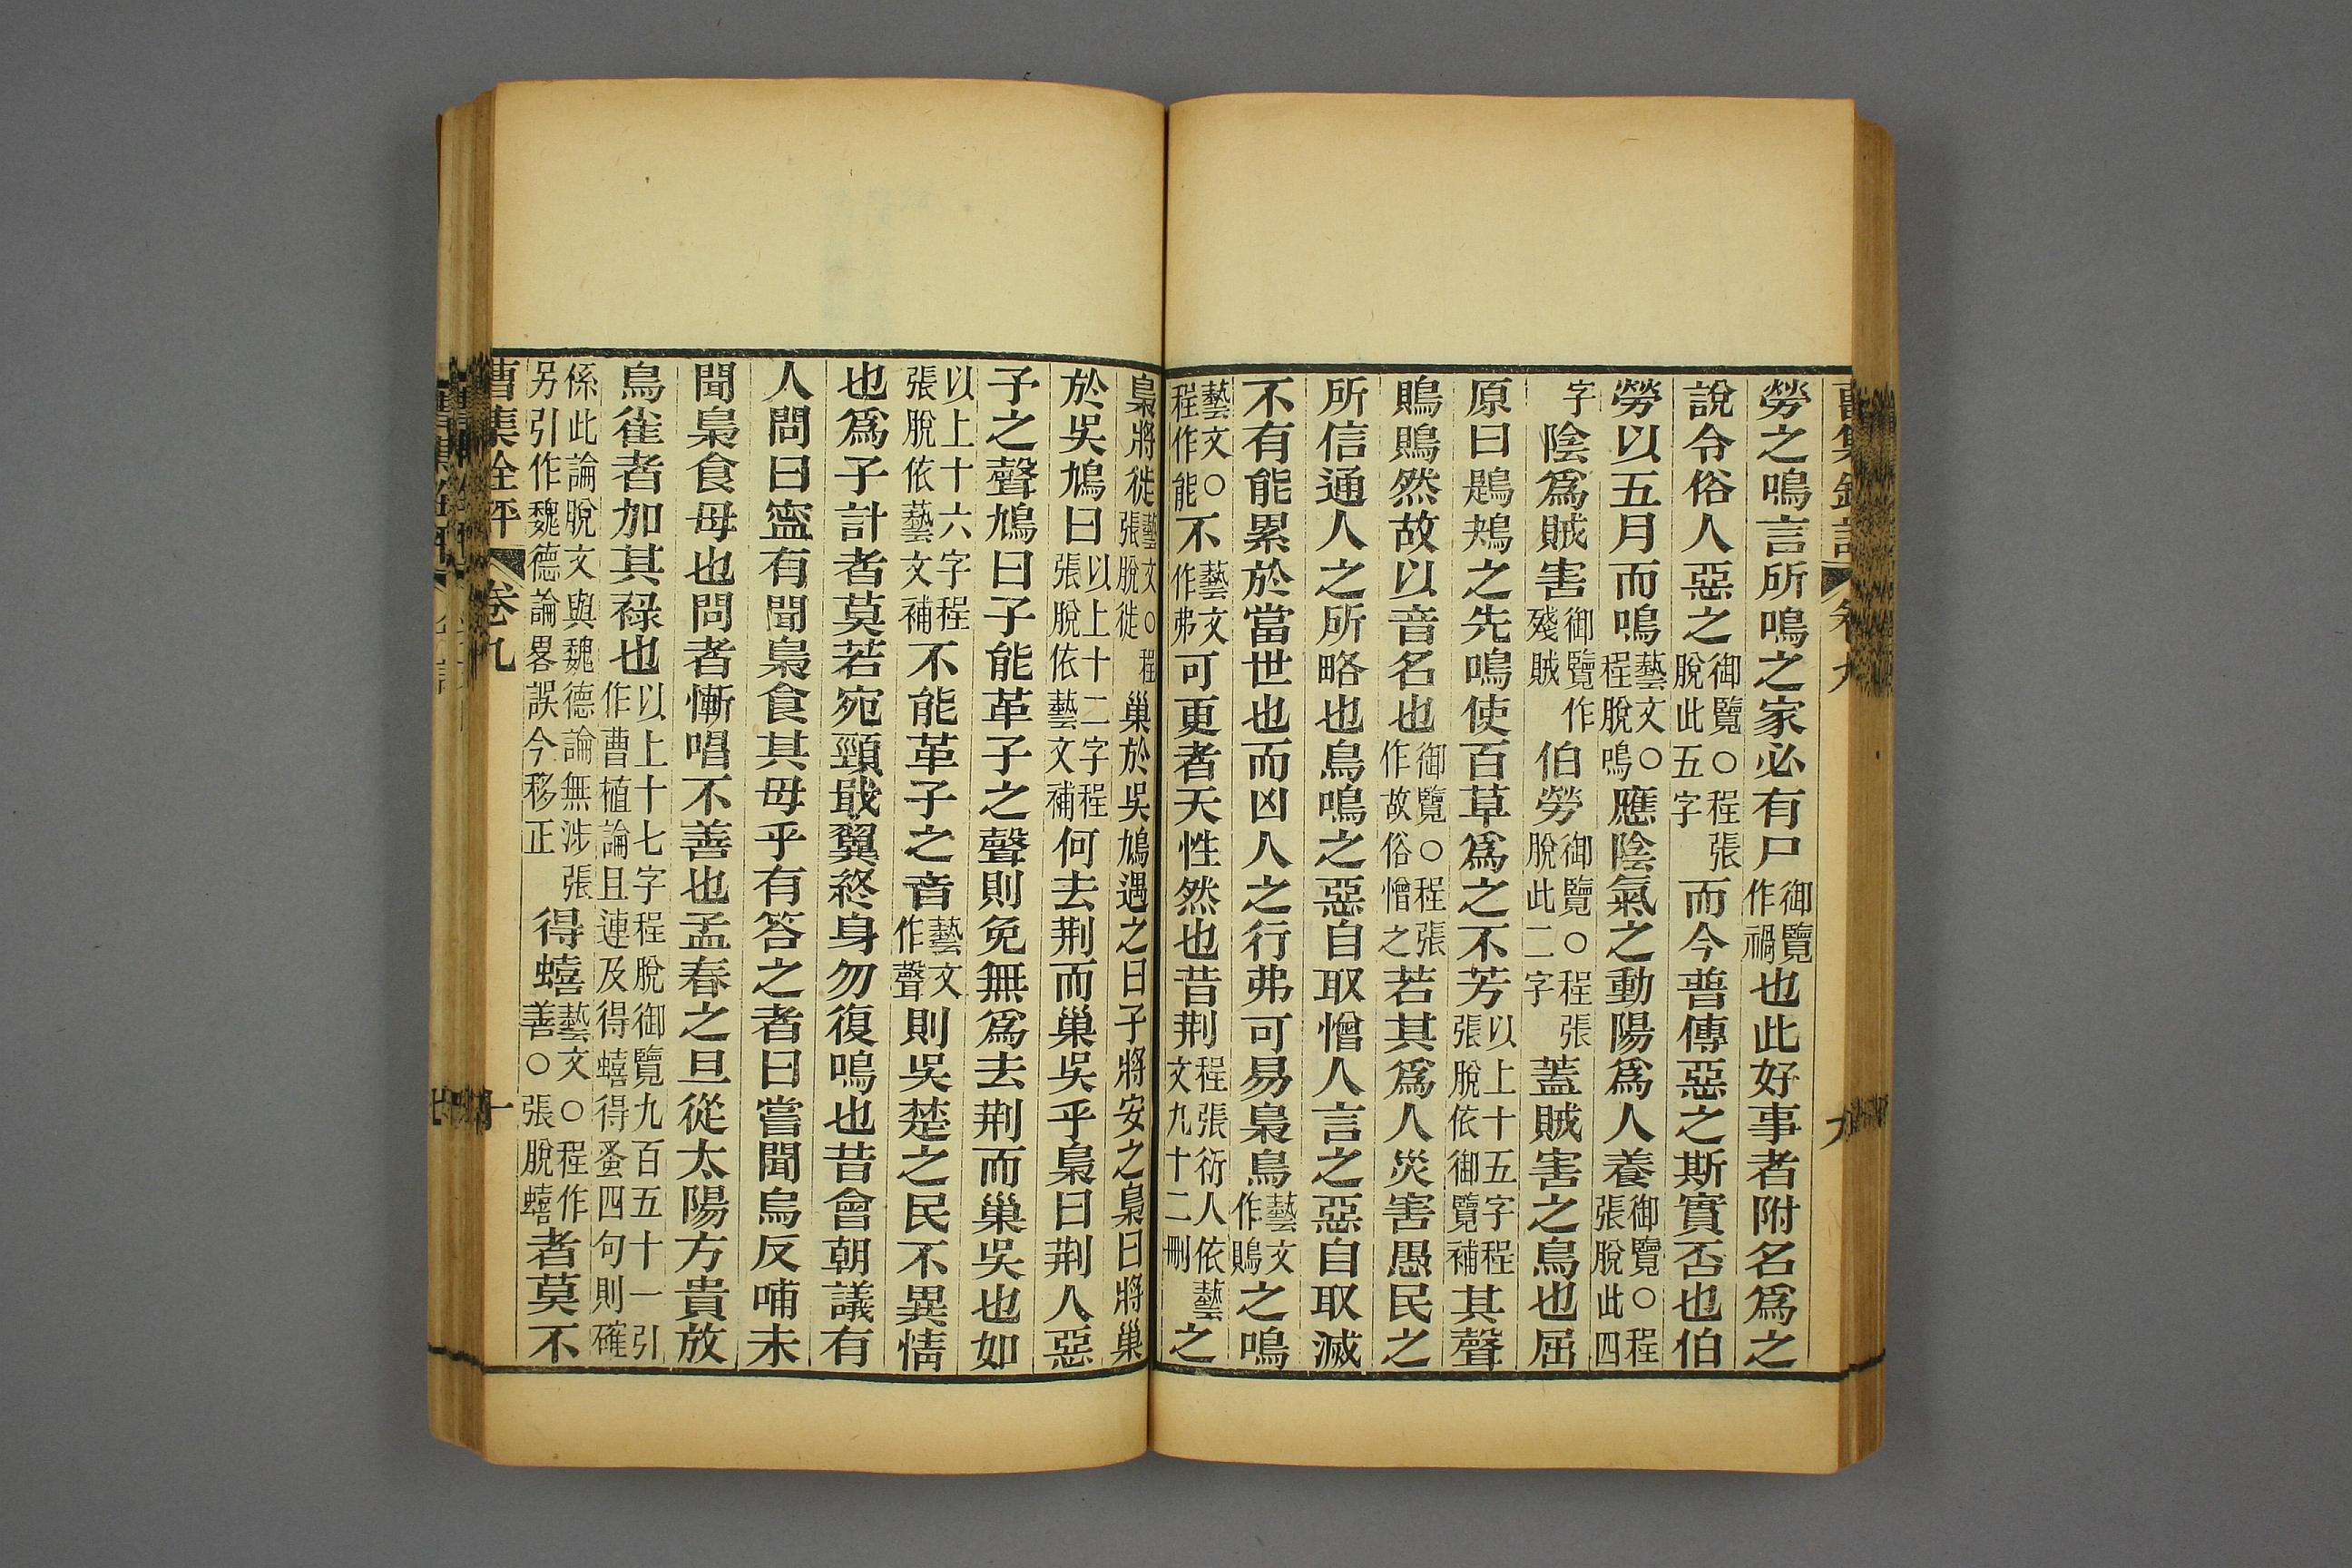 勞之鳴言所鳴之家必有尸御覽作禍也此好事者附名爲之
說令俗人惡之御覽○程張脫此五字而今普傳惡之斯實否也伯
勞以五月而鳴藝文○程脫鳴應陰氣之動陽爲人養御覽○程張脫此四
字陰爲賊害御覽作殘賊伯勞御覽○程張脫此二字蓋賊害之鳥也屈
原曰鶗鴂之先鳴使百草爲之不芳以上十五字程張脫依御覽補其聲
鵙鵙然故以音名也御覽○程張作故俗憎之若其爲人災害愚民之
所信通人之所略也鳥鳴之惡自取憎人言之惡自取滅
不有能累於當世也而凶人之行弗可易梟鳥藝文作鵙之鳴
藝文○程作能不藝文作弗可更者天性然也昔荆程張衍人依藝文九十二刪之
梟將徙藝文○程張脫徙巢於吳鳩遇之曰子將安之梟曰將巢
於吳鳩曰以上十二字程張脫依藝文補何去荆而巢吳乎梟曰荆人惡
予之聲鳩曰子能革子之聲則免無爲去荆而巢吳也如
以上十六字程張脫依藝文補不能革子之音藝文作聲則吳楚之民不異情
也爲子計者莫若宛頸戢翼終身勿復鳴也昔會朝議有
人問曰寍有聞梟食其母乎有答之者曰嘗聞烏反哺未
聞梟食母也問者慚唱不善也孟春之旦從太陽方貴放
鳥雀者加其祿也以上十七字程脫御覽九百五十一引作曹植論且連及得蟢得蚤四句則確
係此論脫文與魏德論無涉張另引作魏德論畧誤今移正得蟢藝文○程作善○張脫蟢者莫不
曹集銓評 卷九 十